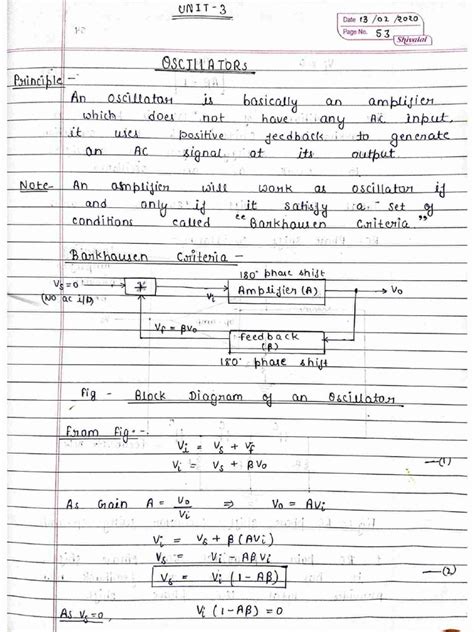 UNIT-3
Date 13/02/2020
Page No. 53
Shivalal
OSCILLATORS
Principle -
An oscillator is basically an amplifier
which does not have any AC input,
it uses positive feedback to generate
an AC signal at its output.
Note- An amplifier will work as oscillator if
and only if it satisfy a set of
conditions called "Barkhausen Criteria."
Barkhausen Criteria -
180° phase shift
Vs=0
Vi
Amplifier (A)
Vo
(No ac i/p)
Vf = βVo
feedback
(β)
180° phase shift
Fig - Block Diagram of an Oscillator
From Fig -
Vi = Vs + Vf
Vi = Vs + βVo —(1)
As Gain A = Vo/Vi ⇒ Vo = AVi
Vi = Vs + β(AVi)
Vs = Vi - Aβ Vi
Vs = Vi (1-Aβ) —(2)
As Vs=0, Vi (1-Aβ) = 0